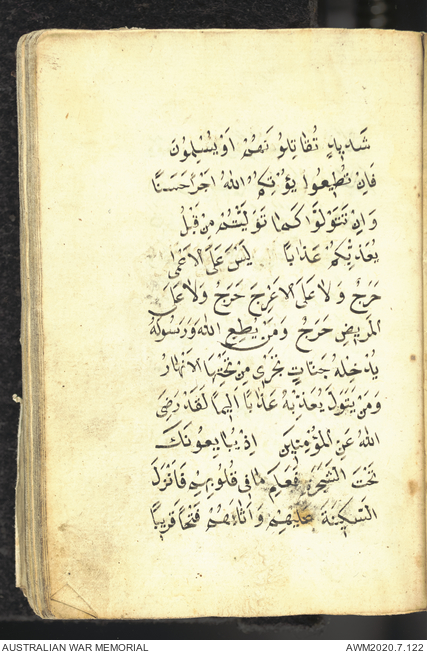 شَدِيدٍ تُقَاتِلُونَهُمْ اَوْ يُسْلِمُونَ
فَاِنْ تُطِيعُوا يُؤْتِكُمُ اللهُ اَجْرًا حَسَنًا
وَاِنْ تَتَوَلَّوْا كَمَا تَوَلَّيْتُمْ مِنْ قَبْلُ
يُعَذِّبْكُمْ عَذَابًا لَيْسَ عَلَى الْاَعْمٰى
حَرَجٌ وَلَا عَلَى الْاَعْرَجِ حَرَجٌ وَلَا عَلَى
الْمَرِيضِ حَرَجٌ وَمَنْ يُطِعِ اللهَ وَرَسُولَهُ
يُدْخِلْهُ جَنَّاتٍ تَجْرِى مِنْ تَحْتِهَا الْاَنْهَارُ
وَمَنْ يَتَوَلَّ يُعَذِّبْهُ عَذَابًا اَلِيمًا لَقَدْ رَضِىَ
اللهُ عَنِ الْمُؤْمِنِينَ اِذْ يُبَايِعُونَكَ
تَحْتَ الشَّجَرَةِ فَعَلِمَ مَا فِى قُلُوبِهِمْ فَاَنْزَلَ
السَّكِينَةَ عَلَيْهِمْ وَاَثَابَهُمْ فَتْحًا قَرِيبًا
AUSTRALIAN WAR MEMORIAL AWM2020.7.122